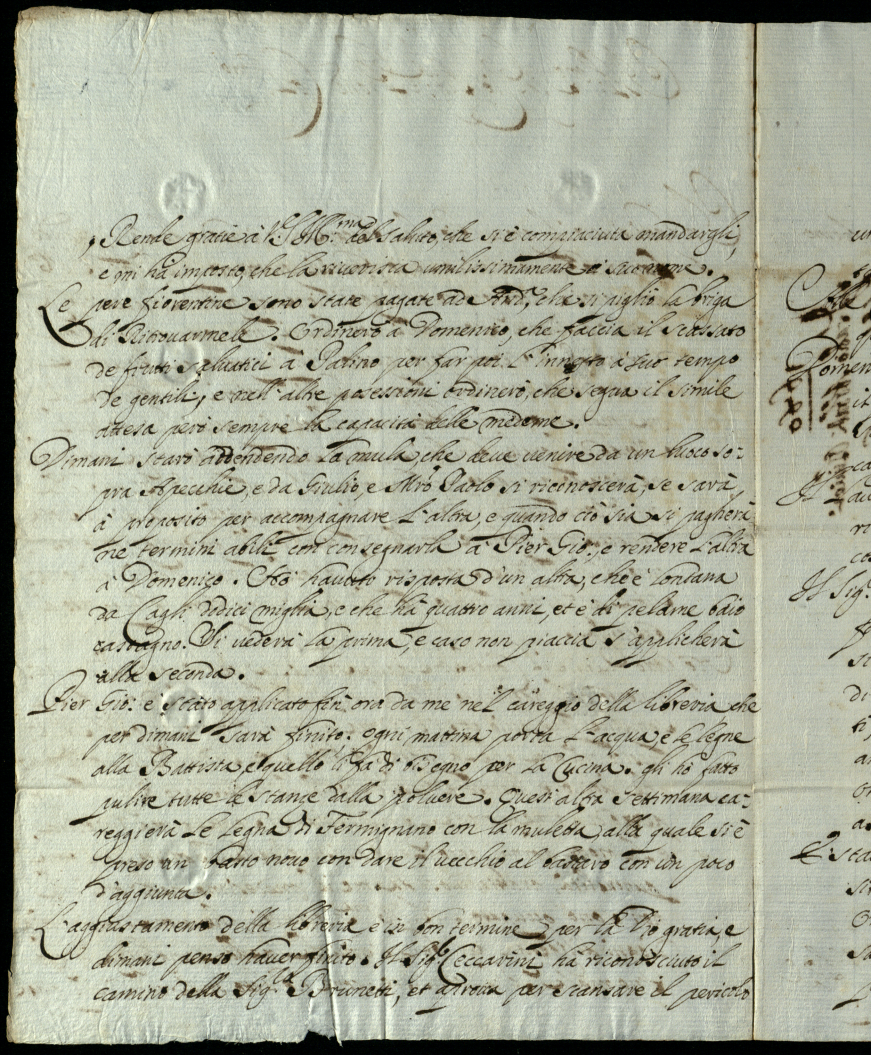 Rende gratie à V.S. Ill.ma del saluto, che si è compiaciuta mandargli,
e mi hà imposto, che la riverisca umilissimamente à suo nome.
Le pere fiorentine sono state pagate ad And.a, che si piglio la briga
di Ritrouarmele. Ordinerò à Domenico, che faccia il scassato
de frutti saluatici à Palino per far poi l'innesto à suo tempo
de gentili, e nell'altre possessioni ordinerò, che segua il simile
attesa però sempre la capacità delle medeme.
Dimani starò attendendo la mula, che deue uenire da un luoco so:
pra Apecchie, e da Giulio, e Mro Paolo si riconoscerà, se sarà
à proposito per accompagnare l'altra, e quando ciò sia si pagherà
ne termini abili con consegnarla à Pier Gio:, e rendere l'altra
à Domenico. Hò hauuto risposta d'un altra, che è lontana
da Cagli dodici miglia, e che hà quattro anni, et è di pelame baio
castagno. Si uederà la prima, e caso non piaccia s'applicherà
alla seconda.
Pier Gio: è stato applicato fin ora da me nel careggio della libreria che
per dimani sarà finito. ogni mattina porta l'acqua, e le legne
alla Battista, e quello li fà di bisegno per la Cucina. gli hò fatto
pulire tutte le stanze dalla poluere. Quest'altra settimana ca:
reggierà le legna di Fermignano con la muletta, alla quale si è
preso un basto nouo con dare il uecchio al bastaro con un poco
d'aggiunta.
L'aggiustamento della libreria è in bon termine per la Dio gratia, e
dimani penso hauer finito. Il Sig.r Ceccarini hà riconosciuto il
camino della Sig.ra Brunetti, et aproua per scansare el pericolo